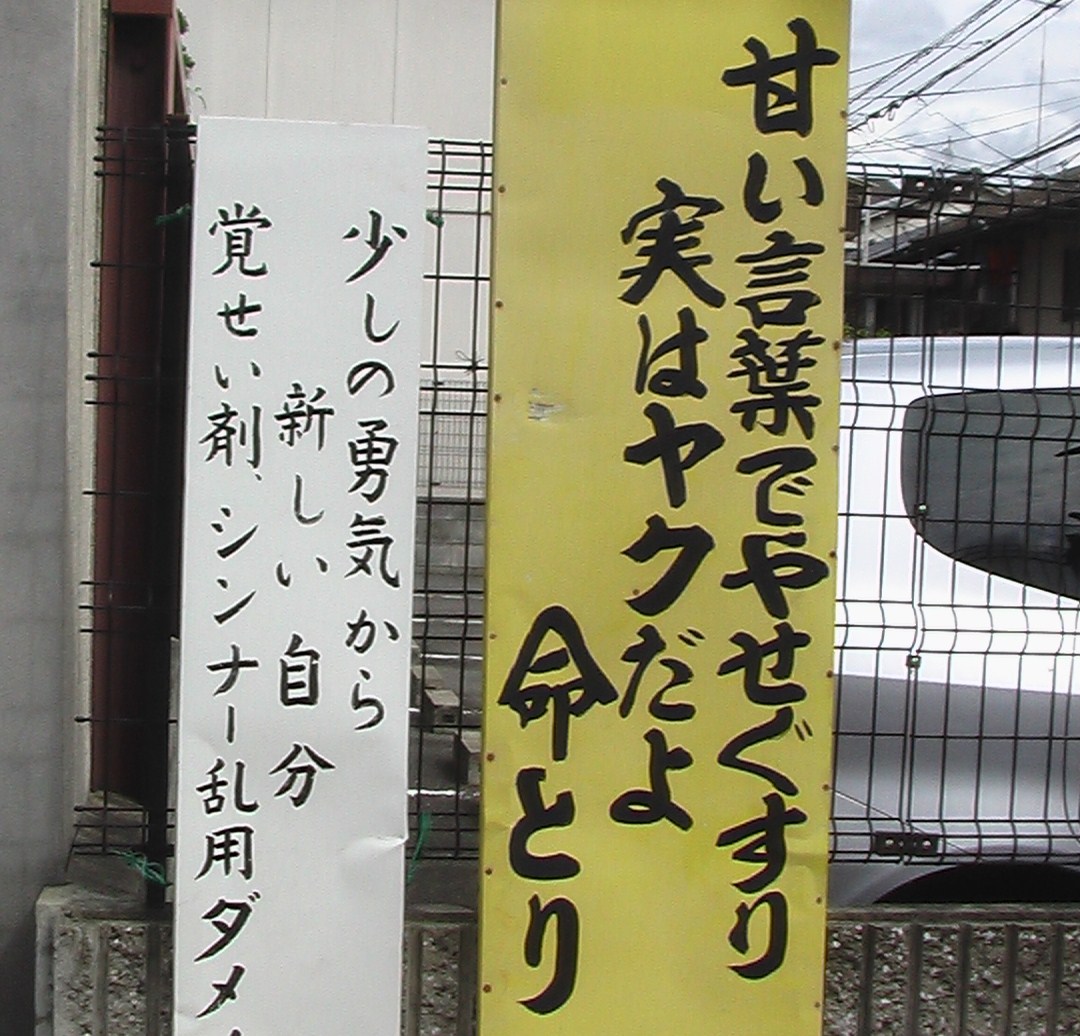 甘い言葉でやせぐすり
実はヤクだよ
命とり
少しの勇気から
新しい自分
覚せい剤、シンナー乱用ダメ